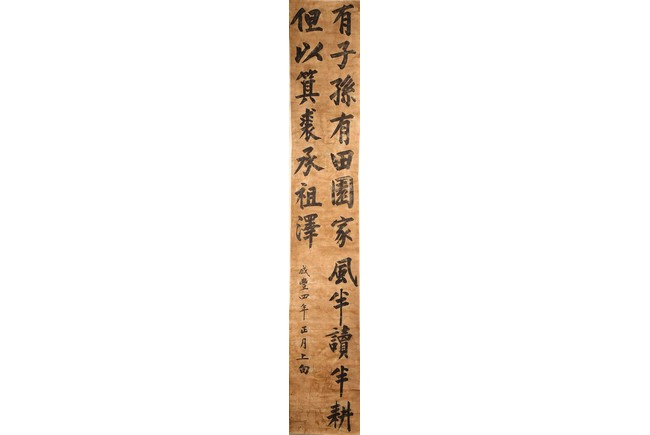 有子孫有田園家風半讀半耕
但以箕裘承祖澤
咸豐四年正月上旬